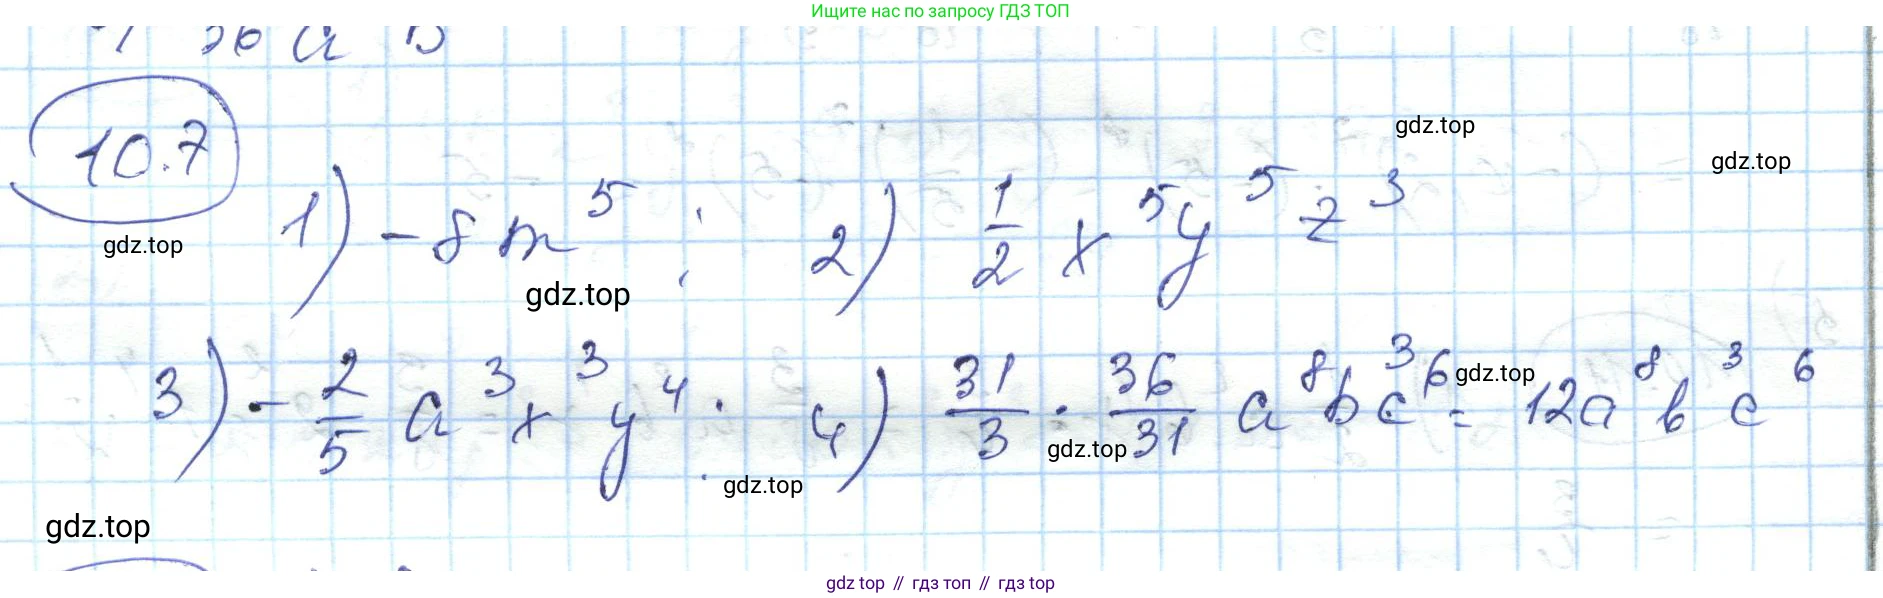 Ищите нас по запросу ГДЗ ТОП
10.7
gdz.top
gdz.top
gdz.top
1) -8m⁵; 2) 1/2 x⁵y⁵z³
gdz.top
3) -2/5 a³x³y⁴; 4) 31/3 · 36/31 a⁸b³c⁶ = 12a⁸b³c⁶
gdz.top
gdz.top
gdz.top
gdz.top
gdz top // гдз топ // гдз top